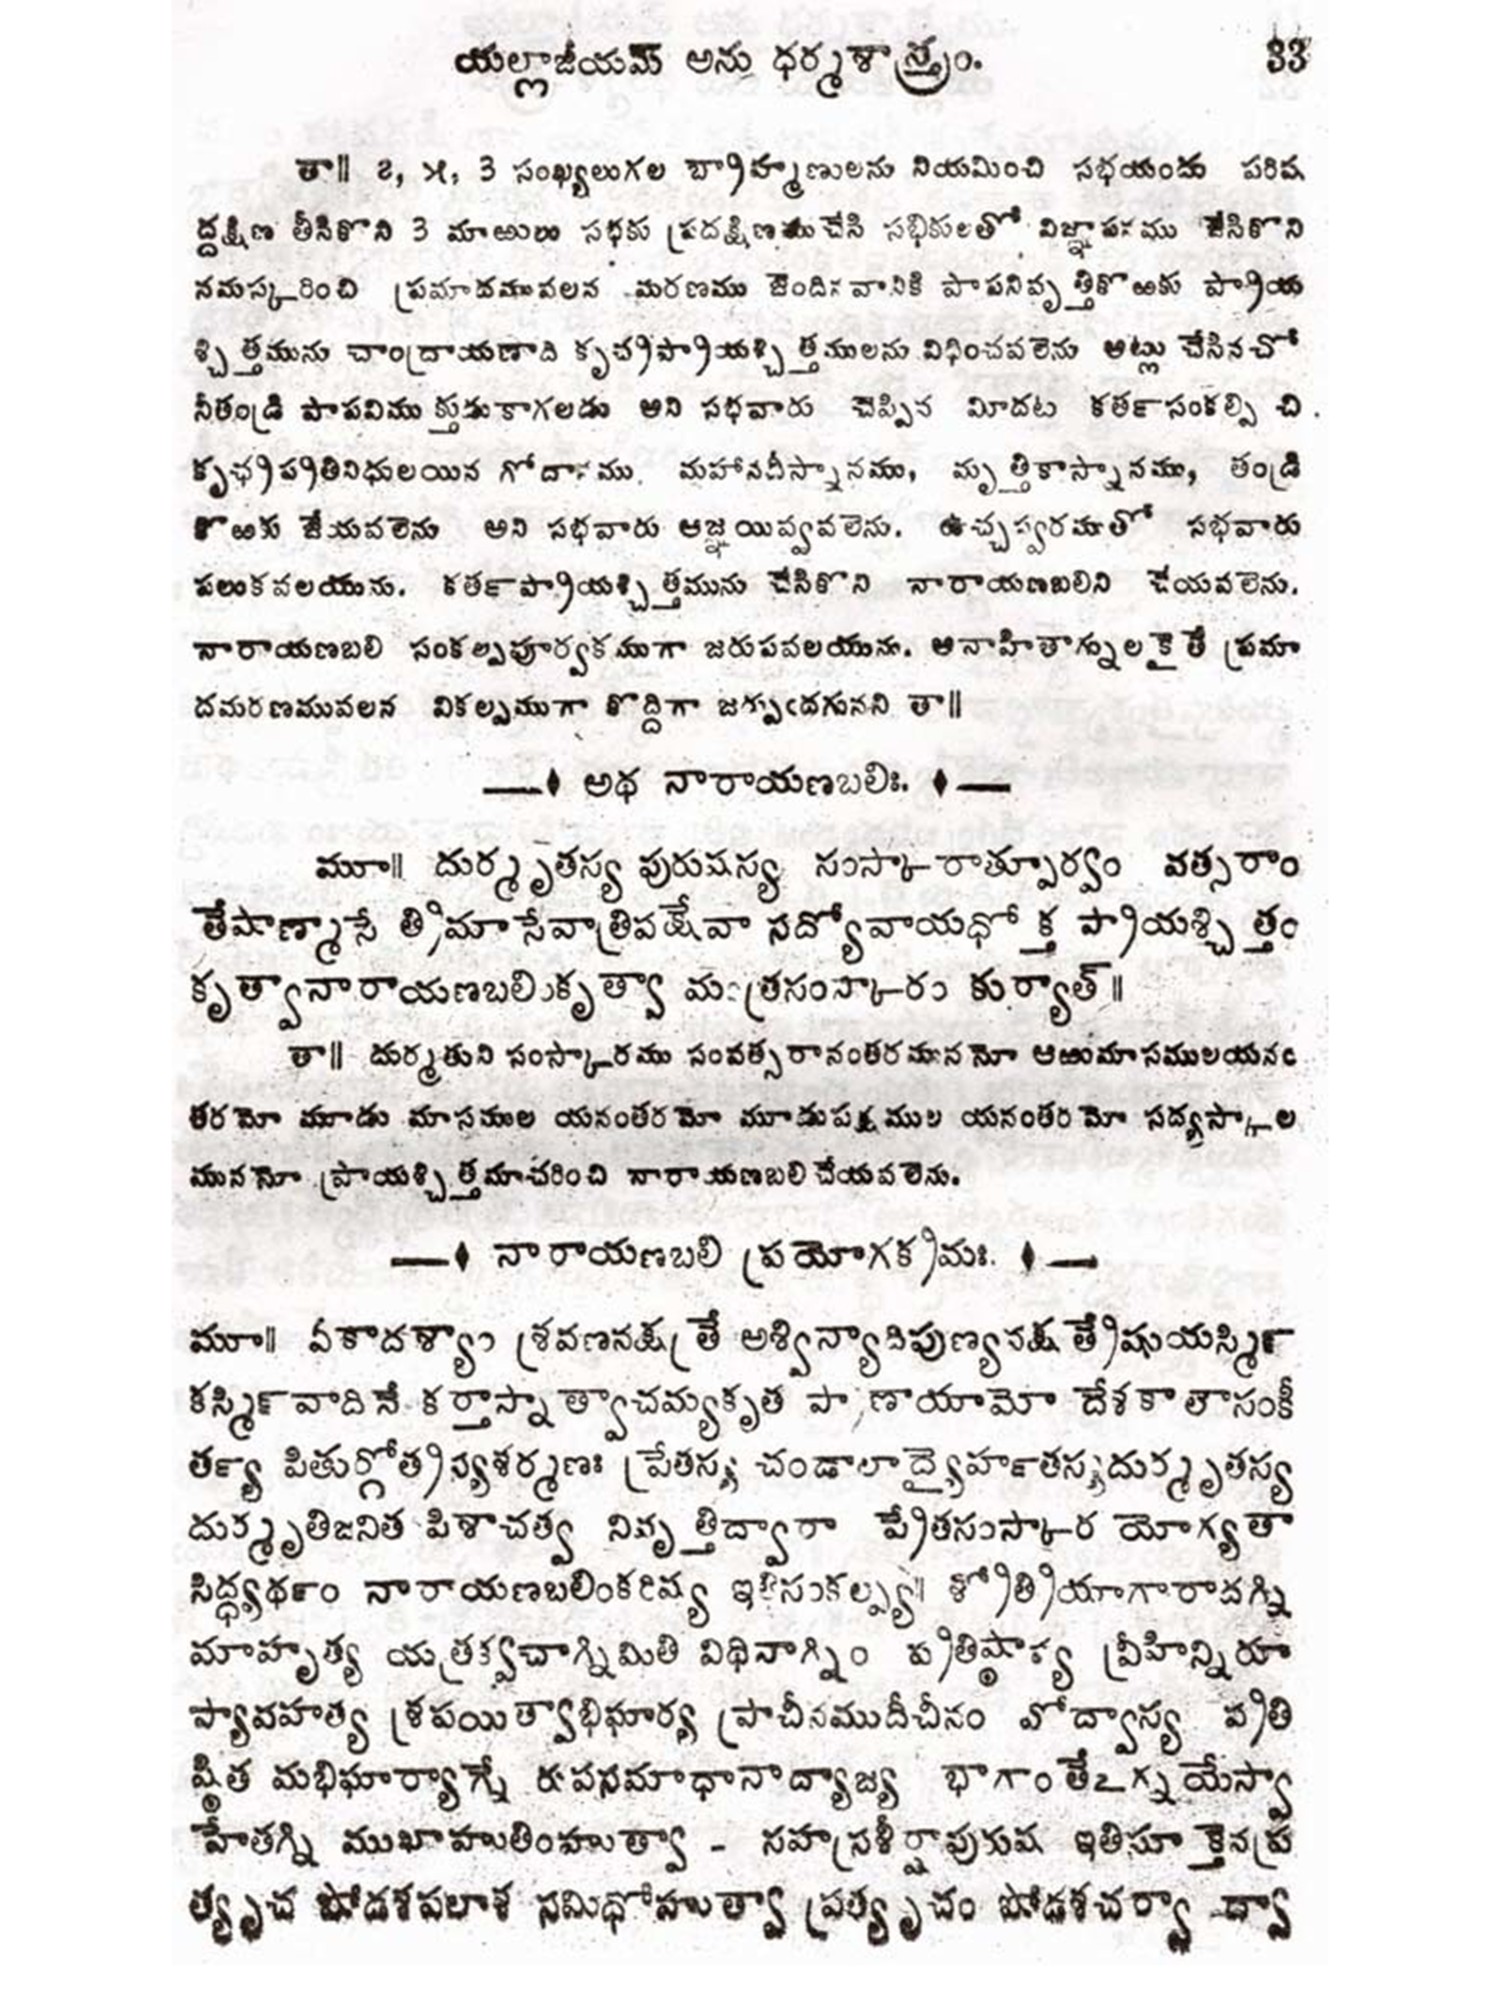 యల్లాజీయమ్ అను ధర్మశాస్త్రం. 33
తా॥ ౭, ౫, 3 సంఖ్యలుగల బ్రాహ్మణులను నియమించి సభయందు పరిష
ద్దక్షిణ తీసికొని 3 మాఱులు సభకు ప్రదక్షిణముచేసి సభికులతో విజ్ఞాపనము జేసికొని
నమస్కరించి ప్రమాదమువలన మరణము జెందినవానికి పాపనివృత్తికొఱకు ప్రాయ
శ్చిత్తమును చాంద్రాయణాది కృచ్ఛ్రప్రాయశ్చిత్తములను విధించవలెను అట్లు చేసినచో
నీతండ్రి పాపవిముక్తుడుకాగలడు అని సభవారు చెప్పిన మీదట కర్తసంకల్పించి
కృఛ్రప్రతినిధులయిన గోదానము, మహానదీస్నానము, మృత్తికాస్నానము, తండ్రి
కొఱకు జేయవలెను అని సభవారు ఆజ్ఞయివ్వవలెను. ఉచ్చస్వరముతో సభవారు
పలుకవలయును. కర్తప్రాయశ్చిత్తమును చేసికొని నారాయణబలిని చేయవలెను.
నారాయణబలి సంకల్పపూర్వకముగా జరుపవలయును. అనాహితాగ్నులకైతే ప్రమా
దమరణమువలన వికల్పముగా కొద్దిగా జరుప్పఁదగునని తా॥
అథ నారాయణబలిః.
మూ॥ దుర్మృతస్య పురుషస్య సంస్కారాత్పూర్వం వత్సరాం
తేషాణ్మాసే త్రిమాసేవాత్రిపక్షేవా సద్యోవాయధోక్త ప్రాయశ్చిత్తం
కృత్వానారాయణబలింకృత్వా మంత్రసంస్కారం కుర్యాత్॥
తా॥ దుర్మతుని సంస్కారము సంవత్సరానంతరమందునో ఆఱుమాసములయనం
తరమో మూడు మాసముల యనంతరమో మూడుపక్షముల యనంతరమో సద్యస్కాల
మునందో ప్రాయశ్చిత్తమాచరించి నారాయణబలిచేయవలెను.
నారాయణబలి ప్రయోగక్రమః.
మూ॥ ఏకాదశ్యాం శ్రవణనక్షత్రే అశ్విన్యాదిపుణ్యనక్షత్రేషుయస్మిన్
కస్మిన్‌వాదినే కర్తాస్నాత్వాచమ్యకృత ప్రాణాయామో దేశకాలౌసంకీ
ర్త్య పితుర్గోత్రస్యశర్మణః ప్రేతస్య చండాలాద్యైర్హతస్యదుర్మృతస్య
దుర్మృతిజనిత పిశాచత్వ నివృత్తిద్వారా ప్రేతసంస్కార యోగ్యతా
సిద్ధ్యర్థం నారాయణబలింకరిష్య ఇతిసంకల్ప్య॥ శ్రోత్రియాగారాదగ్ని
మాహృత్య యత్రక్వచాగ్నిమితి విధినాగ్నిం ప్రతిష్ఠాప్య వ్రీహిన్నిరూ
ప్యావహత్య శ్రపయిత్వాభిఘార్య ప్రాచీనముదీచీనం వోద్వాస్య ప్రతి
ష్ఠిత మభిఘార్యాగ్నే రుపసమాధానాద్యాజ్య భాగాంతేఽగ్నయేస్వా
హేతగ్ని ముఖాహుతింహుత్వా - సహస్రశీర్షాపురుష ఇతిసూక్తేనప్ర
త్యృచ షోడశపలాశ సమిధోహుత్వా ప్రత్యృచం షోడశచర్వా ద్వా